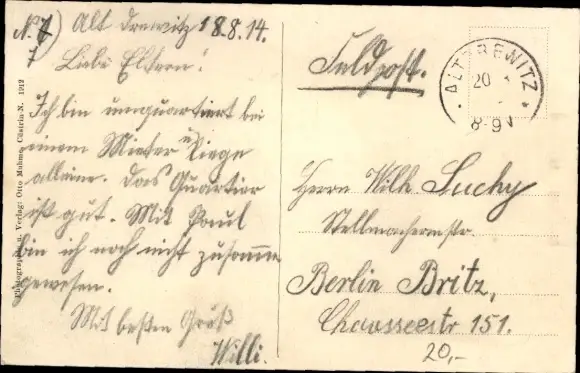 No 7) Alt Drewitz 18.8.14.
7
Liebe Eltern!
Ich bin umquartiert bei
einem Mieter u. liege
alleine. Das Quartier
ist gut. Mit Paul
bin ich noch nicht zusammen
gewesen.
Mit besten Gruß
Willi.
Photographie u. Verlag: Otto Muhme, Cüstrin N. 1912
Feldpost.
ALT DREWITZ
20
8-9 N
Herrn Wilh. Luchy
Stellmachermstr.
Berlin Britz,
Chausseestr 151.
20,-